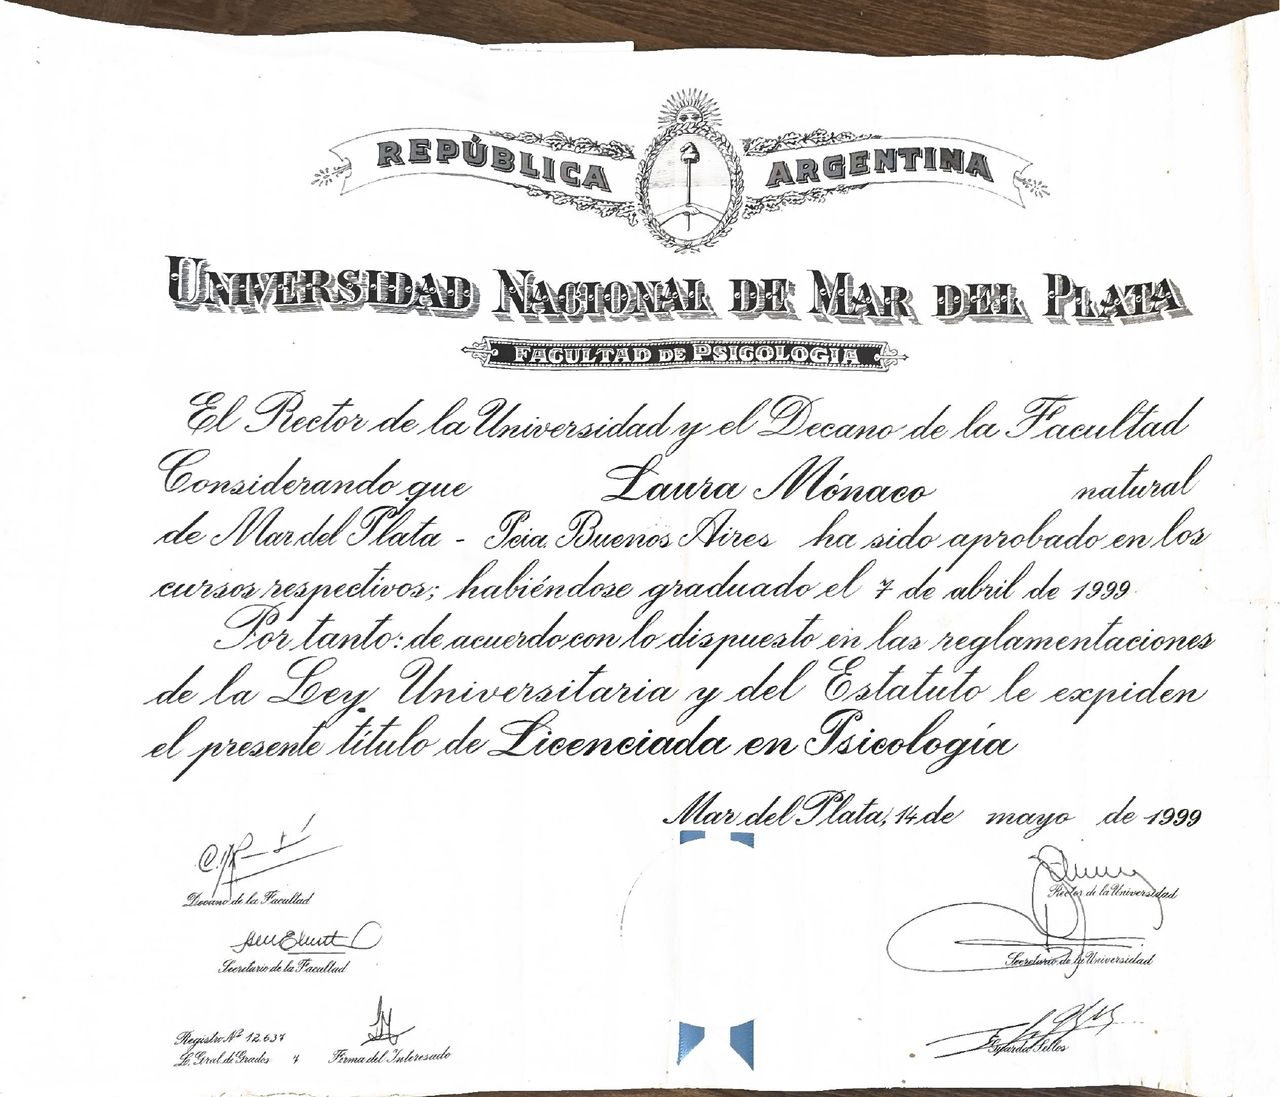 REPÚBLICA ARGENTINA
UNIVERSIDAD NACIONAL DE MAR DEL PLATA
FACULTAD DE PSICOLOGIA
El Rector de la Universidad y el Decano de la Facultad
Considerando que Laura Mónaco natural
de Mar del Plata - Pcia. Buenos Aires ha sido aprobado en los
cursos respectivos; habiéndose graduado el 7 de abril de 1999
Por tanto: de acuerdo con lo dispuesto en las reglamentaciones
de la Ley Universitaria y del Estatuto le expiden
el presente título de Licenciada en Psicología
Mar del Plata, 14 de mayo de 1999
Decano de la Facultad
Rector de la Universidad
Secretario de la Facultad
Secretario de la Universidad
Registro Nº 12.637
L. Gral. de Grados 7 Firma del Interesado